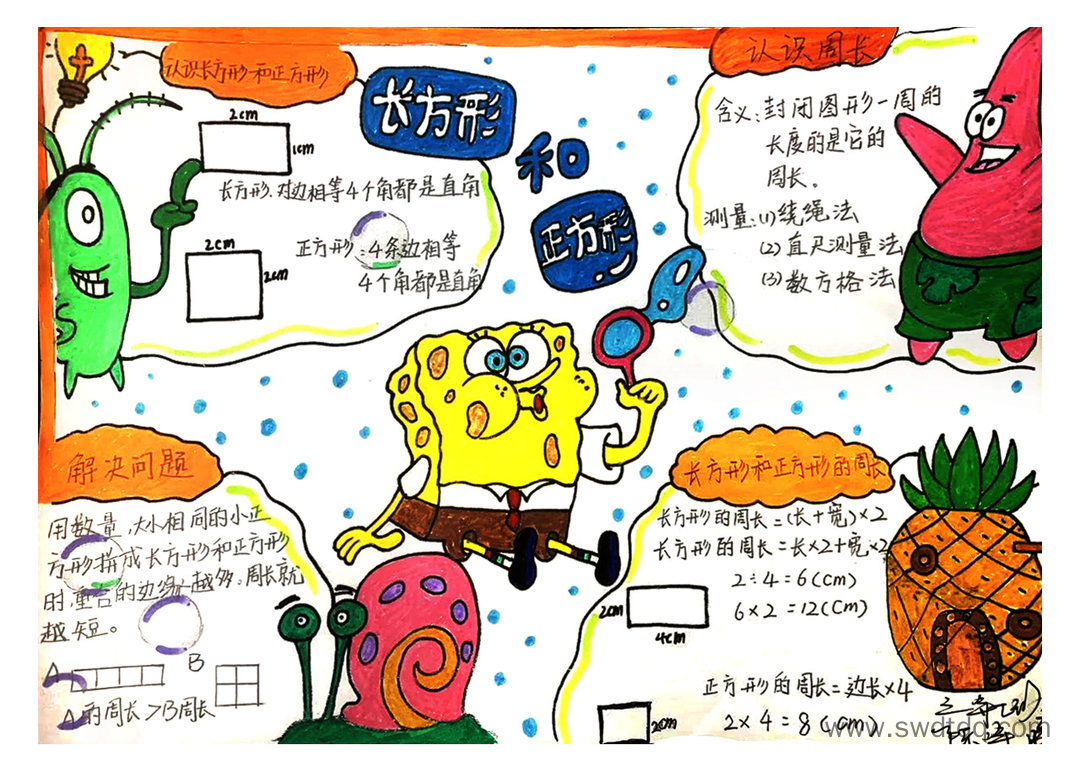 认识长方形和正方形
长方形
和
正方形
2cm
1cm
长方形:对边相等4个角都是直角
2cm
2cm
正方形:4条边相等
4个角都是直角
认识周长
含义:封闭图形一周的
长度的是它的
周长。
测量:(1)绕绳法
(2)直尺测量法
(3)数方格法
解决问题
用数量,大小相同的小正
方形拼成长方形和正方形
时,重合的边缘越多。周长就
越短。
A
B
A的周长>B周长
长方形和正方形的周长
长方形的周长=(长+宽)×2
长方形的周长=长×2+宽×2
2÷4=6(cm)
6×2=12(cm)
2cm
4cm
正方形的周长=边长×4
2×4=8(cm)
2cm
www.swdtdq.com